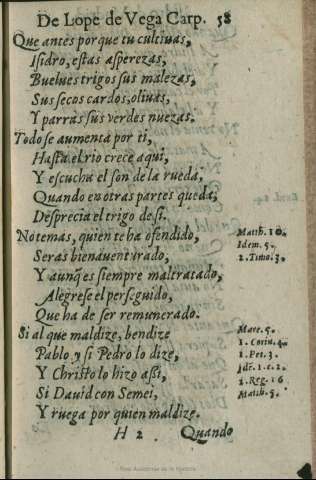 De Lope de Vega Carp. 58
Que antes porque tu cultiuas,
Isidro, estas asperezas,
Buelues trigos sus malezas,
Sus secos cardos, oliuas,
Y parras sus verdes nuezas.
Todo se aumenta por ti,
Hasta el rio crece aqui,
Y escucha el son de la rueda,
Quando en otras partes queda,
Desprecia el trigo de si.
No temas, quien te ha ofendido, Matth. 10.
Seras bienauenturado, Idem. 5.
Y aunq̃ es siempre maltratado, 2. Timo. 3.
Alegrese el perseguido,
Que ha de ser remunerado.
Si al que maldize, bendize Matt. 5.
Pablo, y si Pedro lo dize, 1. Corin. 4.
Y Christo lo hizo assi, 1. Pet. 3.
Si Dauid con Semei, 1. Reg. 16
Y ruega por quien maldize. Matth. 5.
H 2 Quando
Real Academia de la Historia